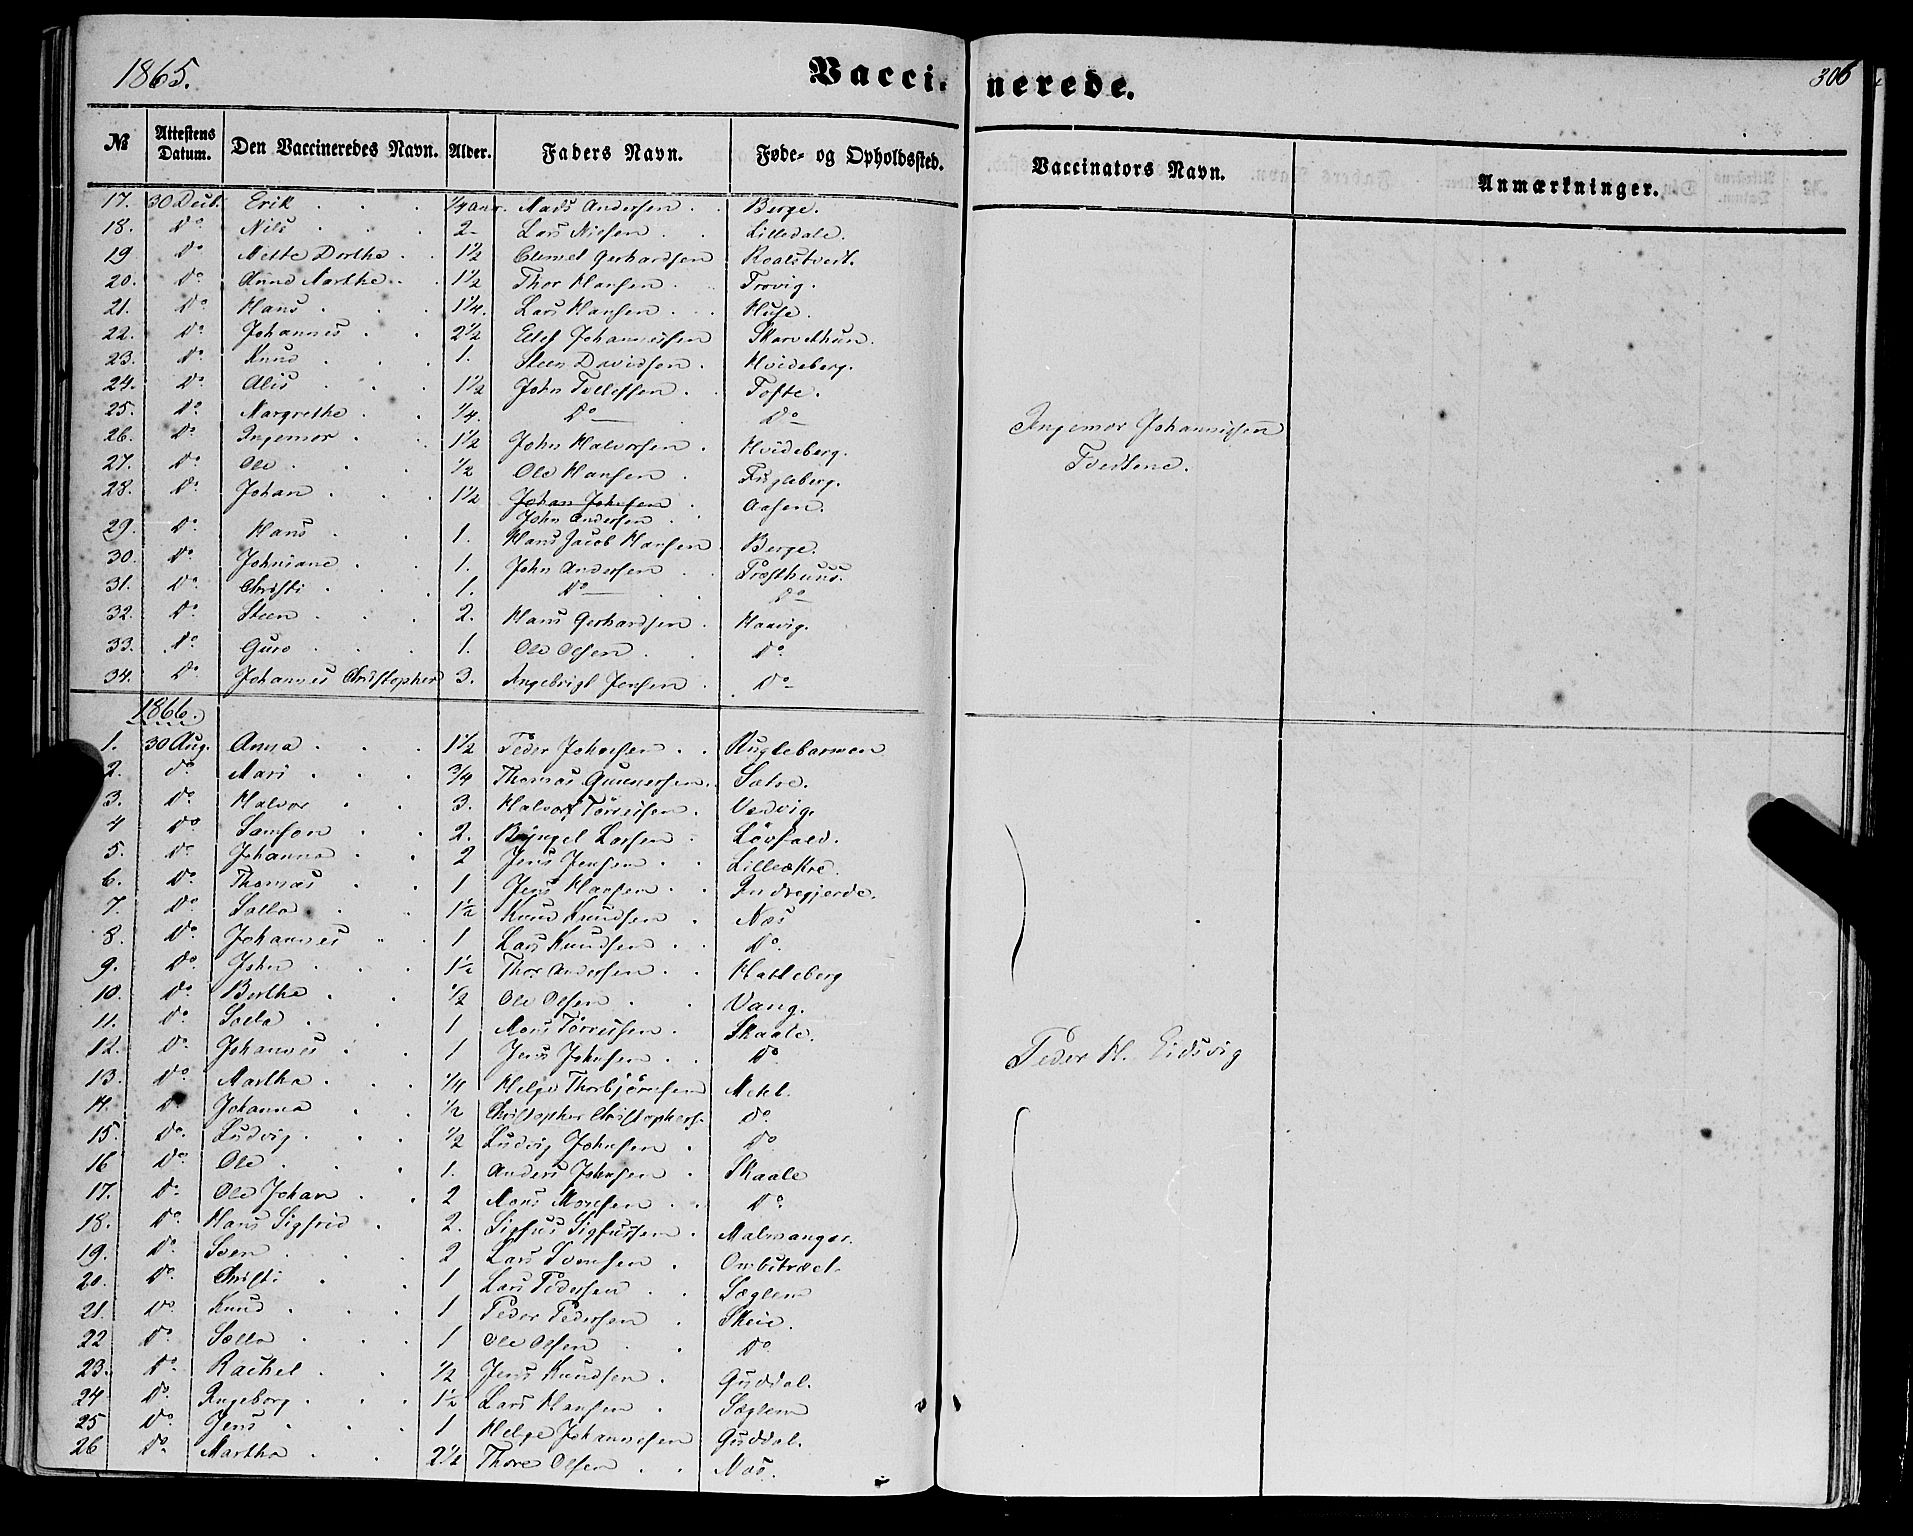 1865.
Vaccinerede.
306
№ Attestens Datum. Den Vaccineredes Navn. Alder. Faders Navn. Føde- og Opholdssted. Vaccinators Navn. Anmærkninger.
17. 30 Decb. Erik 1/4 aar. Mads Andersen Berge.
18. Do Nils 2 - Lars Nielsen Lilledale.
19 Do Mette Dorthe 1 1/2 Clemet Gerhardsen Roaldtveit.
20. Do Anna Marthe 1 1/2 Thor Hansen Trovig.
21. Do Hans 1 1/4. Lars Hansen Huse.
22. Do Johannes 2 1/2 Johannessen
23. Do Knud 1. Steen Davidsen Hvideberg.
24. Do Alis 1 1/2 John Tollefsen Tofte.
25. Do Margrethe 1/4. Do Do
26. Do Ingemor 1 1/2 John Halvorsen Hvideberg.
27. Do Ole 1/2 Ole Hansen Fugleberg.
28. Do Johan 1 1/2 Johan Johnsen Aasen.
John Andersen
29. Do Hans 1. Hans Jacob Hansen Berge.
30. Do Johniane 1. John Andersen Præsthuus.
31. Do Christi 1. Do Do
32. Do Steen 2. Hans Gerhardsen Haavig.
33. Do Guro 1. Ole Olsen Do
34. Do Johannes Christopher 3. Angebrigt Jensen Do
Ingemor Johannessen
1866.
1. 30 Aug. Anna 1 1/2 Peder Johnsen
2. Do Mari 3/4 Thomas Gunnersen Sætre.
3. Do Halvor 3. Halvor Tørrissen Vedvig.
4 Do Samson 2. Lassen Løvfald.
5. Do Johanna 2 Jens Jensen Lilleækre.
6. Do Thomas 1 Jens Hansen Indregjerde.
7. Do Salla 1 1/2 Knud Knudsen Næs
8. Do Johannes 1 Lars Knudsen Do
9. Do John 1 1/2 Thor Andersen Hatteberg
10. Do Berthe 1/2 Ole Olsen Vang.
11. Do Salla 1 Mons Tørrissen Skaale.
12. Do Johannes 1 Jens Johnsen Do
13. Do Martha 1/4 Helge Thorbjørnsen Mehl.
14. Do Johanna 1/2 Christopher Christophers. Do
15. Do Ludvig 1/2 Ludvig Johnsen Do
16 Do Ole 1. Anders Johnsen Skaale
17. Do Ole Johan 2 Mons Monsen Do
18. Do Hans Sigfrid 2. Sigfus Sigfussen Malmanger.
19. Do Sven 2 Lars Svensen Ombstvedt.
20. Do Christi 1 Lars Pedersen Sæglem
21. Do Knud 1 Peder Pedersen Skeie.
22 Do Sælla 1 Ole Olsen Do
23. Do Rachel 1/2 Jens Knudsen Guddal.
24 Do Ingeborg 1 1/2 Lars Hansen Sæglem
25 Do Jens 1 Helge Johannesen Guddal.
26 Do Martha 2 1/2 Thore Olsen Næs.
Peder H. Eidsvig